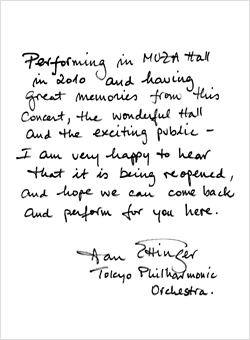 Performing in MUZA Hall
in 2010 and having
great memories from this
Concert, the wonderful Hall
and the exciting public –
I am very happy to hear
that it is being reopened,
and hope we can come back
and perform for you here.
Dan Ettinger
Tokyo Philharmonic
Orchestra.